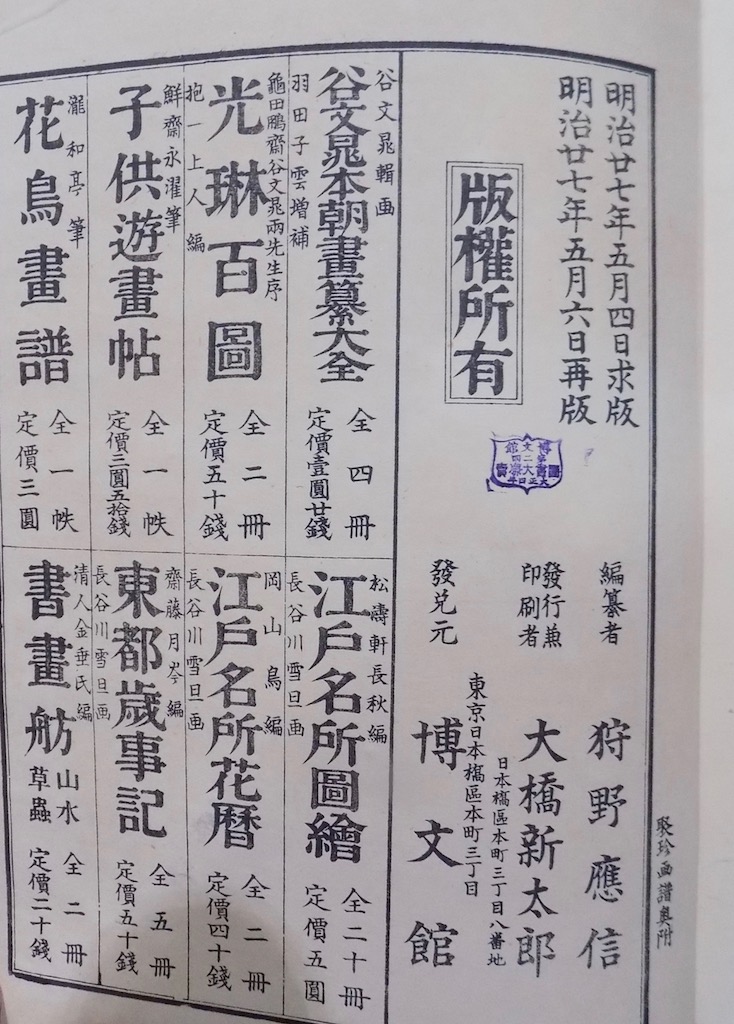 明治廿七年五月四日求版
明治廿七年五月六日再版
版權所有
編纂者 狩野應信
發行兼印刷者 大橋新太郎
日本橋區本町三丁目八番地
東京日本橋區本町三丁目
發兌元 博文館
聚珍画譜奥附
谷文晁輯画
谷文晁本朝畫纂大全
羽田子雲增補
全四冊
定價壹圓廿錢
龜田鵬齋谷文晁兩先生序
光琳百圖
抱一上人編
全二冊
定價五十錢
鮮齋永濯筆
子供遊畫帖
全一帙
定價三圓五拾錢
瀧和亭筆
花鳥畫譜
全一帙
定價三圓
松濤軒長秋編
江戶名所圖繪
長谷川雪旦画
全二十冊
定價五圓
岡山鳥編
江戶名所花曆
長谷川雪旦画
全二冊
定價四十錢
齋藤月岑編
東都歲事記
長谷川雪旦画
全五冊
定價五十錢
清人金垂氏編
書畫舫 山水草蟲
全二冊
定價二十錢